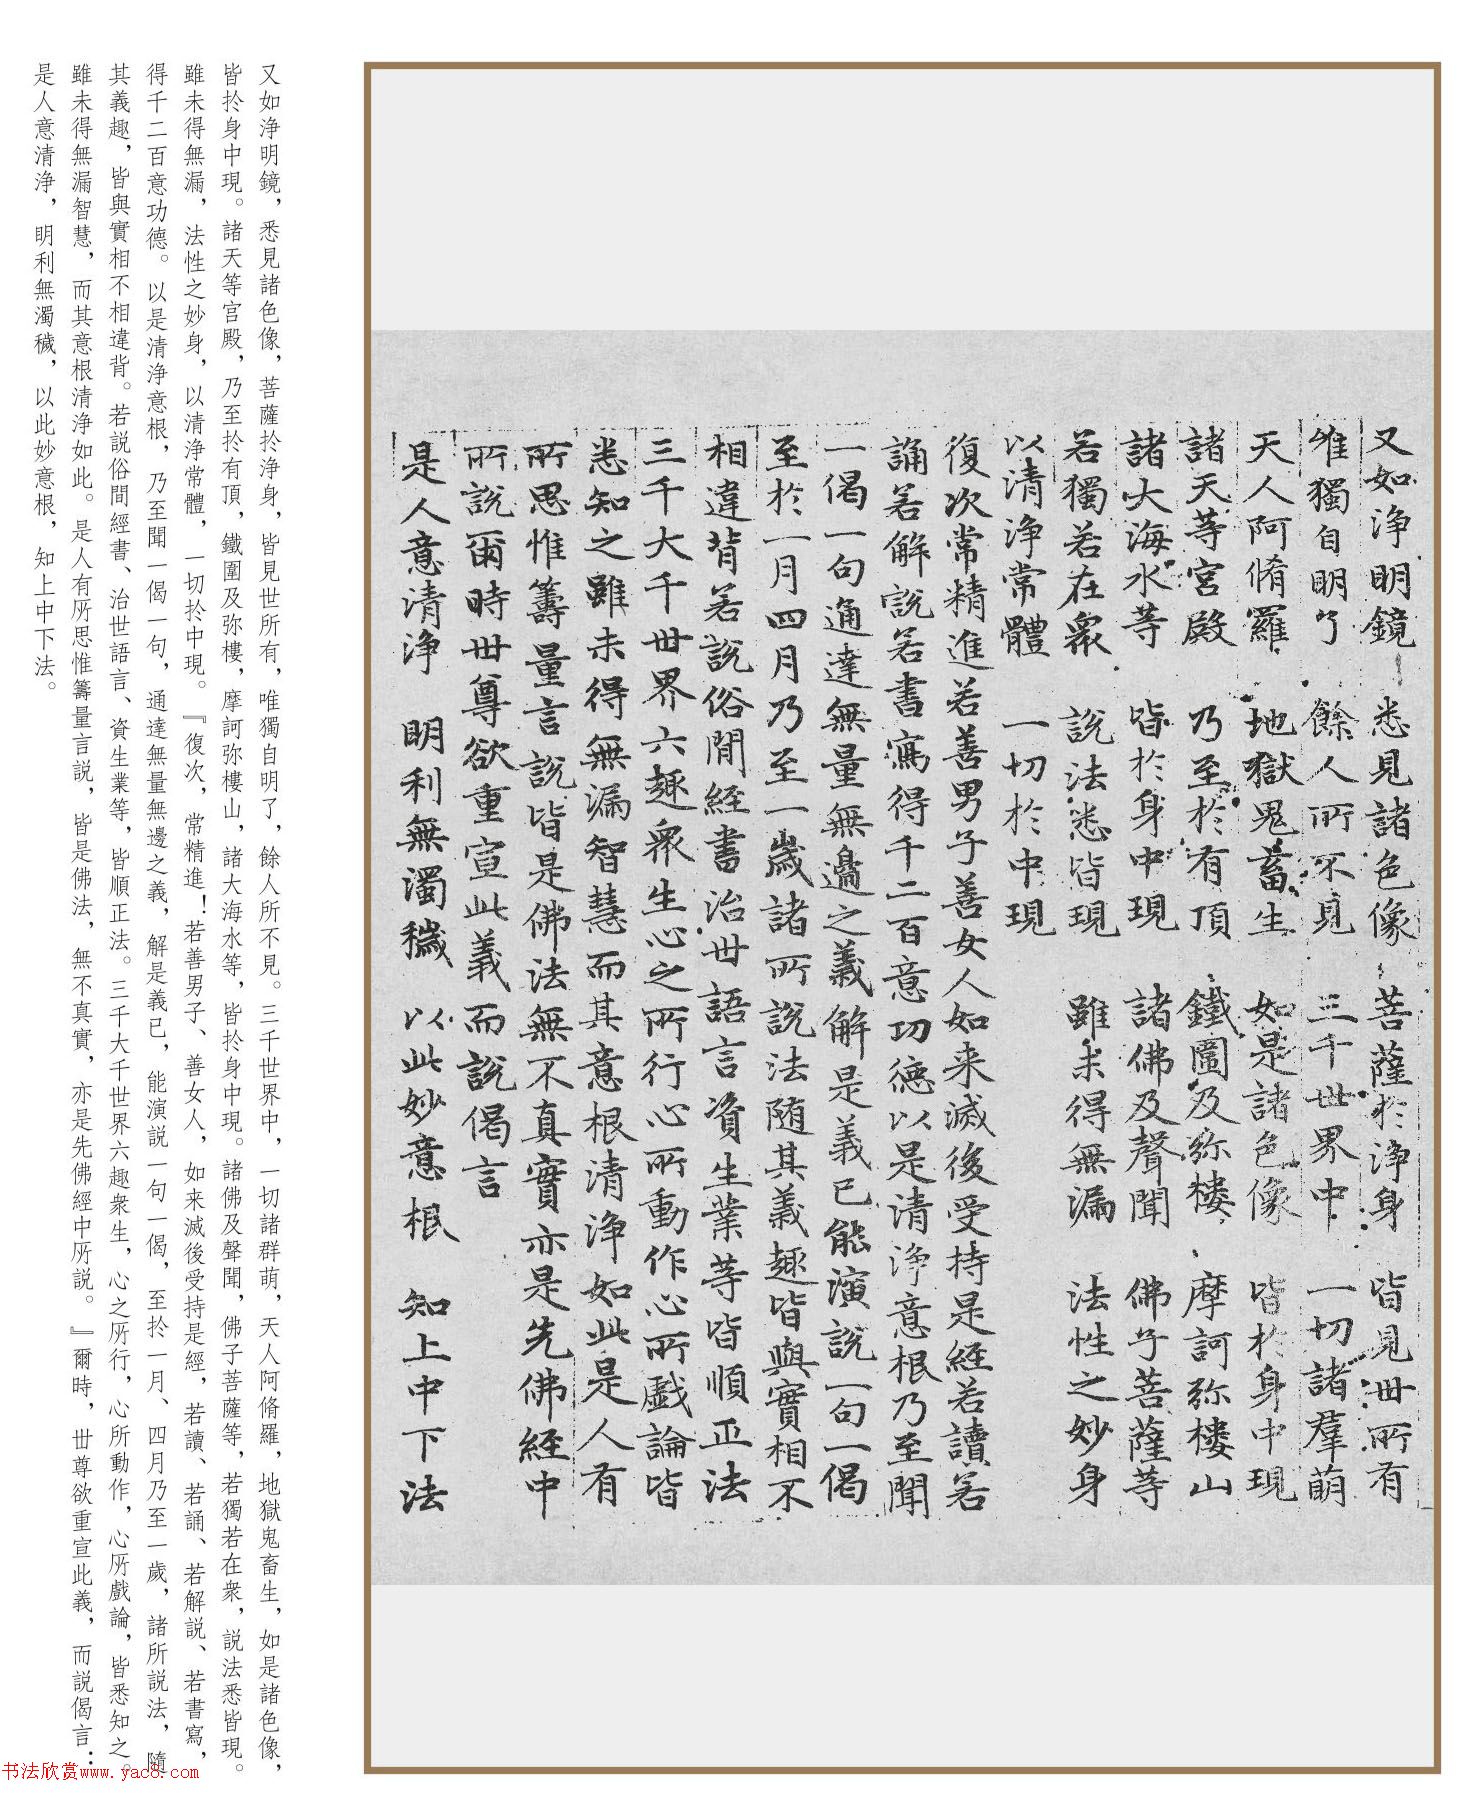 又如淨明鏡 悉見諸色像 菩薩扵淨身 皆見世所有
唯獨自明了 餘人所不見 三千世界中 一切諸羣萌
天人阿脩羅 地獄鬼畜生 如是諸色像 皆扵身中現
諸天等宮殿 乃至扵有頂 鐵圍及弥樓 摩訶弥樓山
諸大海水等 皆扵身中現 諸佛及聲聞 佛子菩薩等
若獨若在眾 說法悉皆現 雖未得無漏 法性之妙身
以清淨常體 一切扵中現
復次常精進若善男子善女人如来滅後受持是經若讀若
誦若解說若書寫得千二百意功德以是清淨意根乃至聞
一偈一句通達無量無邊之義解是義已能演說一句一偈
至扵一月四月乃至一歲諸所說法随其義趣皆與實相不
相違背若說俗間經書治世語言資生業等皆順正法
三千大千世界六趣眾生心之所行心所動作心所戲論皆
悉知之雖未得無漏智慧而其意根清淨如此是人有
所思惟籌量言說皆是佛法無不真實亦是先佛經中
所說爾時世尊欲重宣此義而說偈言
是人意清淨 明利無濁穢 以此妙意根 知上中下法
又如淨明鏡，悉見諸色像，菩薩扵淨身，皆見世所有，唯獨自明了，餘人所不見。三千世界中，一切諸群萌，天人阿脩羅，地獄鬼畜生，如是諸色像，
皆扵身中現。諸天等宮殿，乃至扵有頂，鐵圍及弥樓，摩訶弥樓山，諸大海水等，皆扵身中現。諸佛及聲聞，佛子菩薩等，若獨若在衆，説法悉皆現。
雖未得無漏，法性之妙身，以清淨常體，一切扵中現。『復次，常精進！若善男子、善女人，如来滅後受持是經，若讀、若誦、若解説、若書寫，
得千二百意功德。以是清淨意根，乃至聞一偈一句，通達無量無邊之義，解是義已，能演説一句一偈，至扵一月、四月乃至一歲，諸所説法，隨
其義趣，皆與實相不相違背。若説俗間經書、治世語言、資生業等，皆順正法。三千大千世界六趣衆生，心之所行，心所動作，心所戲論，皆悉知之。
雖未得無漏智慧，而其意根清淨如此。是人有所思惟籌量言説，皆是佛法，無不真實，亦是先佛經中所説。』爾時，世尊欲重宣此義，而説偈言：
是人意清淨，明利無濁穢，以此妙意根，知上中下法。
书法欣赏www.yac8.com